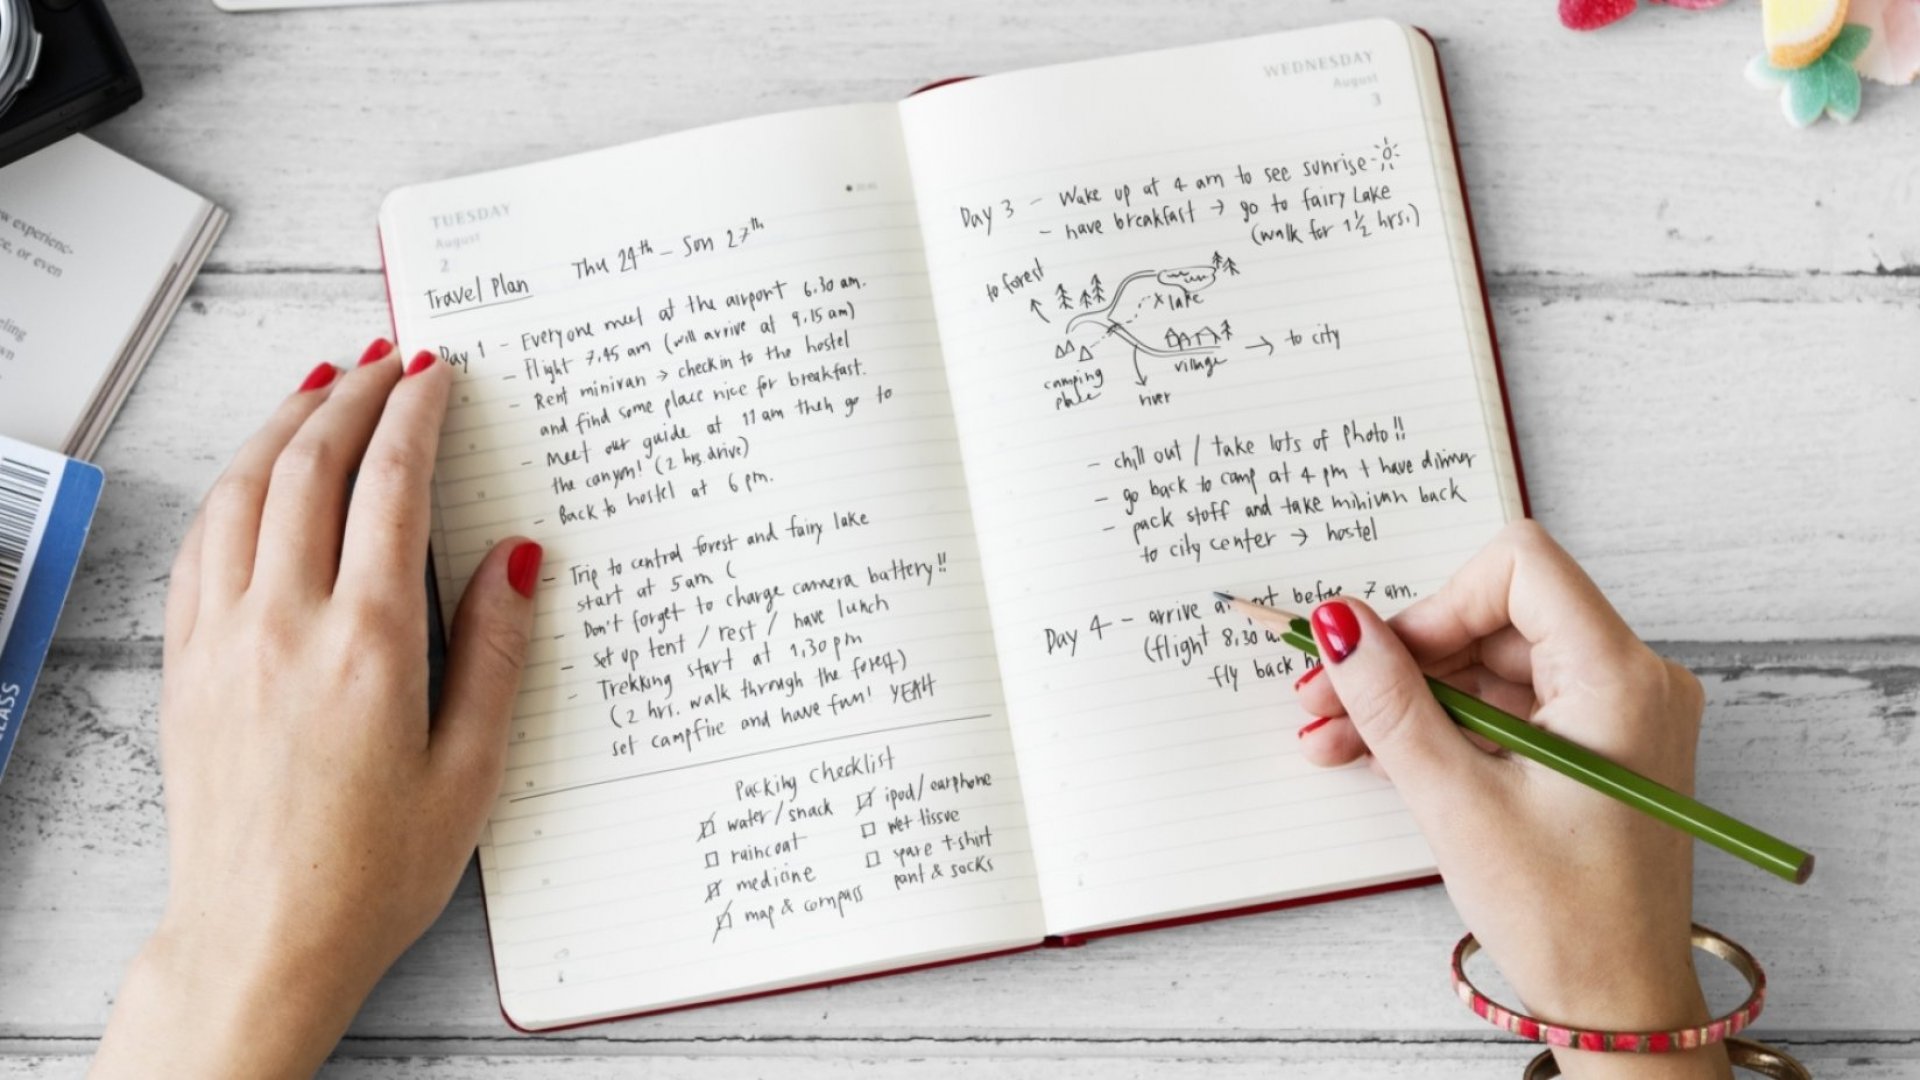 w experienc-
ce, or even
eling
wn
CLASS
TUESDAY
August
2
Travel Plan Thu 24th - Sun 27th
Day 1 - Everyone meet at the airport 6.30 am.
- Flight 7.45 am (will arrive at 9.15 am)
- Rent minivan → check in to the hostel
and find some place nice for breakfast.
- Meet our guide at 11 am then go to
the canyon! (2 hrs. drive)
- Back to hostel at 6 pm.
- Trip to central forest and fairy lake
start at 5am (
- Don't forget to charge camera battery!!
- set up tent / rest / have lunch
- Trekking start at 1.30 pm
(2 hrs. walk through the forest)
set campfire and have fun! YEAH
Packing Checklist
water/snack
raincoat
medicine
map & compass
ipod/earphone
wet tissue
spare t-shirt
pant & socks
WEDNESDAY
August
3
Day 3 - Wake up at 4 am to see sunrise
- have breakfast → go to fairy Lake
(walk for 1½ hrs.)
to forest
x lake
to city
village
camping
place
river
- chill out / take lots of photo!!
- go back to camp at 4 pm + have dinner
- pack stuff and take minivan back
to city center → hostel
Day 4 - arrive a rt before 7 am.
(flight 8.30 a
fly back h